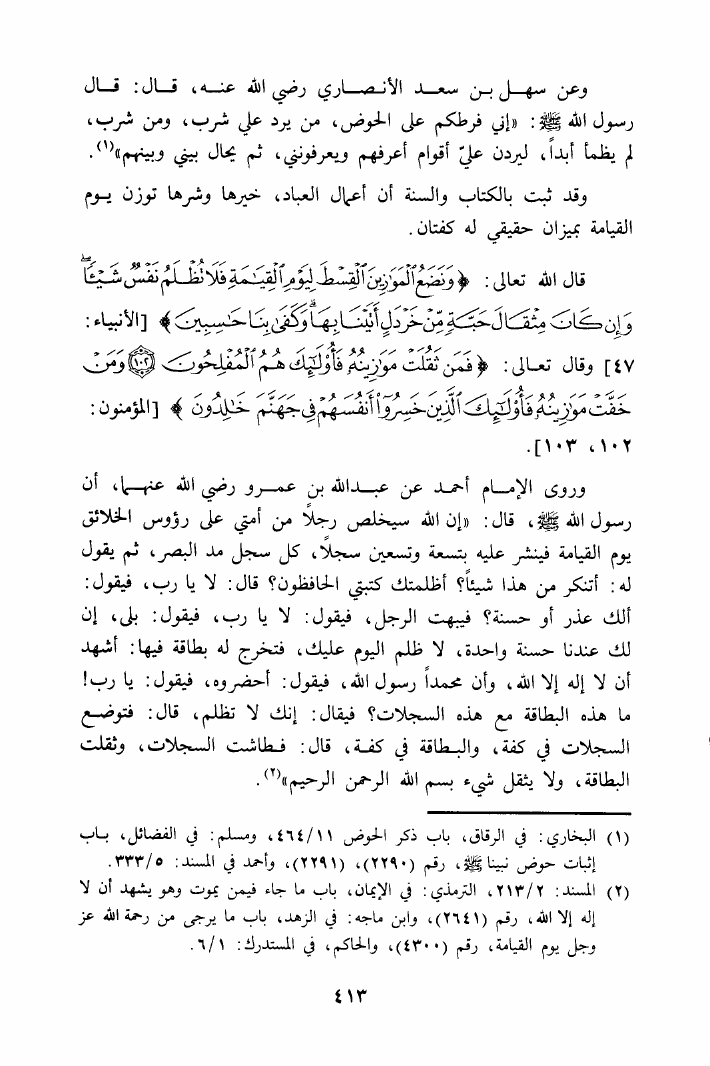 وعن سهل بن سعد الأنصاري رضي الله عنه، قال: قال
رسول الله ﷺ: «إني فرطكم على الحوض، من يرد علي شرب، ومن شرب،
لم يظمأ أبداً، ليردن عليّ أقوام أعرفهم ويعرفونني، ثم يحال بيني وبينهم»(١).
وقد ثبت بالكتاب والسنة أن أعمال العباد، خيرها وشرها توزن يوم
القيامة بميزان حقيقي له كفتان.
قال الله تعالى: ﴿وَنَضَعُ ٱلْمَوَٰزِينَ ٱلْقِسْطَ لِيَوْمِ ٱلْقِيَٰمَةِ فَلَا تُظْلَمُ نَفْسٌ شَيْـًٔا ۖ
وَإِن كَانَ مِثْقَالَ حَبَّةٍ مِّنْ خَرْدَلٍ أَتَيْنَا بِهَا ۗ وَكَفَىٰ بِنَا حَٰسِبِينَ﴾ [الأنبياء:
٤٧] وقال تعالى: ﴿فَمَن ثَقُلَتْ مَوَٰزِينُهُۥ فَأُو۟لَٰٓئِكَ هُمُ ٱلْمُفْلِحُونَ ١٠٢ وَمَنْ
خَفَّتْ مَوَٰزِينُهُۥ فَأُو۟لَٰٓئِكَ ٱلَّذِينَ خَسِرُوٓا۟ أَنفُسَهُمْ فِى جَهَنَّمَ خَٰلِدُونَ﴾ [المؤمنون:
١٠٢، ١٠٣].
وروى الإمام أحمد عن عبدالله بن عمرو رضي الله عنهما، أن
رسول الله ﷺ، قال: «إن الله سيخلص رجلاً من أمتي على رؤوس الخلائق
يوم القيامة فينشر عليه بتسعة وتسعين سجلاً، كل سجل مد البصر، ثم يقول
له: أتنكر من هذا شيئاً؟ أظلمتك كتبتي الحافظون؟ قال: لا يا رب، فيقول:
ألك عذر أو حسنة؟ فيبهت الرجل، فيقول: لا يا رب، فيقول: بلى، إن
لك عندنا حسنة واحدة، لا ظلم اليوم عليك، فتخرج له بطاقة فيها: أشهد
أن لا إله إلا الله، وأن محمداً رسول الله، فيقول: أحضروه، فيقول: يا رب!
ما هذه البطاقة مع هذه السجلات؟ فيقال: إنك لا تظلم، قال: فتوضع
السجلات في كفة، والبطاقة في كفة، قال: فطاشت السجلات، وثقلت
البطاقة، ولا يثقل شيء بسم الله الرحمن الرحيم»(٢).
(١) البخاري: في الرقاق، باب ذكر الحوض ٤٦٤/١١، ومسلم: في الفضائل، باب
إثبات حوض نبينا ﷺ، رقم (٢٢٩٠)، (٢٢٩١)، وأحمد في المسند: ٣٣٣/٥.
(٢) المسند: ٢١٣/٢، الترمذي: في الإيمان، باب ما جاء فيمن يموت وهو يشهد أن لا
إله إلا الله، رقم (٢٦٤١)، وابن ماجه: في الزهد، باب ما يرجى من رحمة الله عز
وجل يوم القيامة، رقم (٤٣٠٠)، والحاكم، في المستدرك: ٦/١.
٤١٣